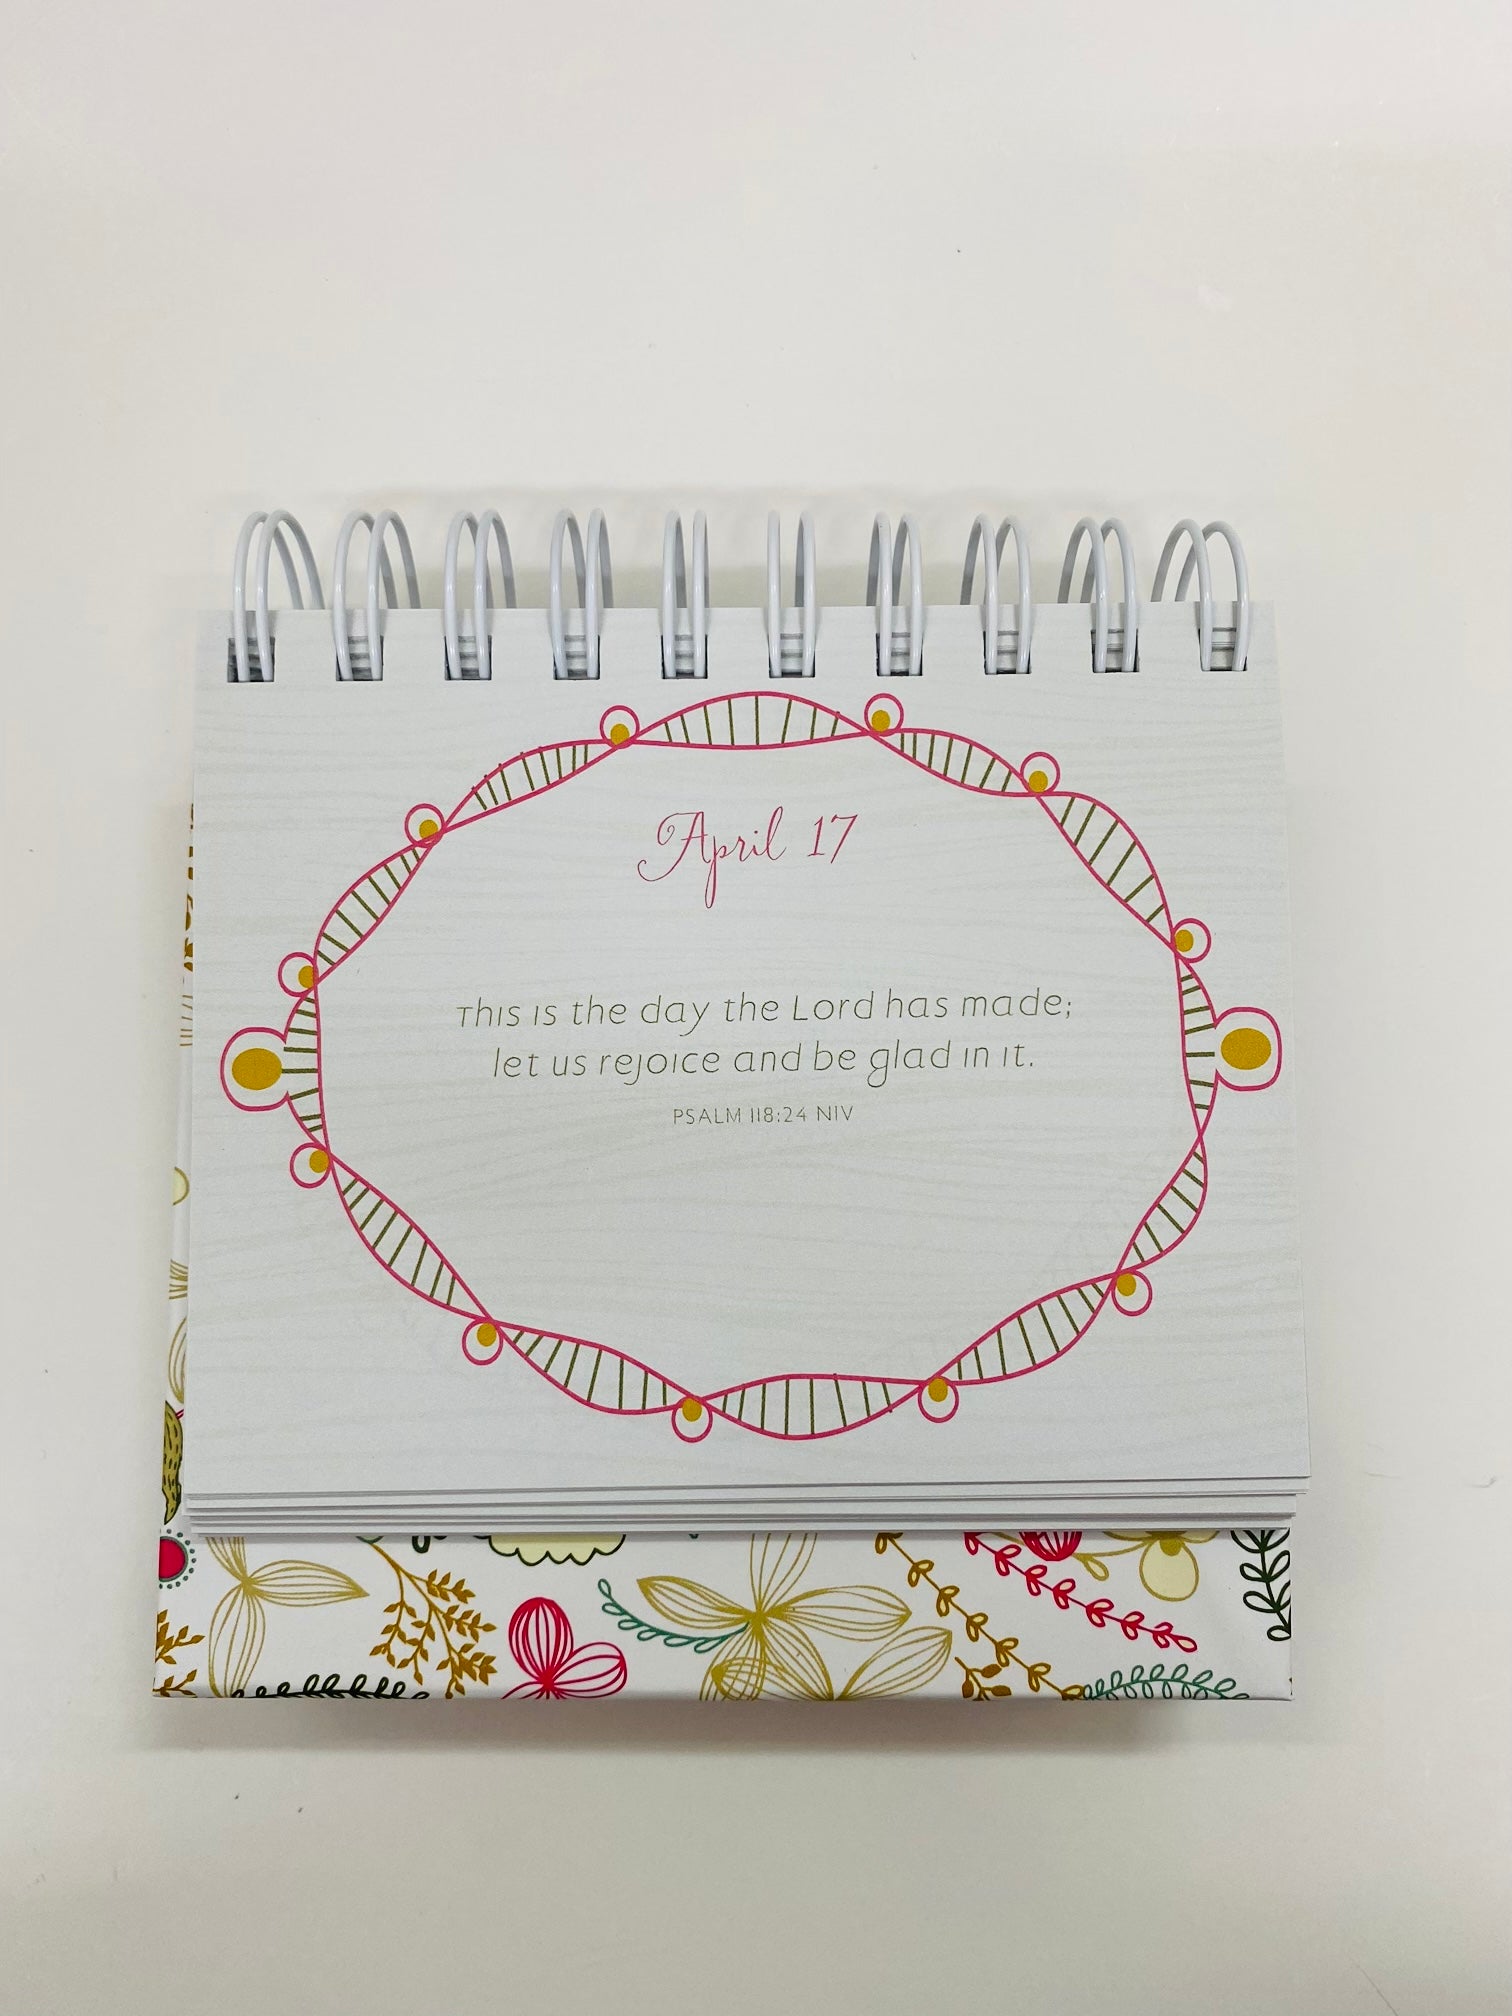 April 17
This is the day the Lord has made;
let us rejoice and be glad in it.
PSALM 118:24 NIV